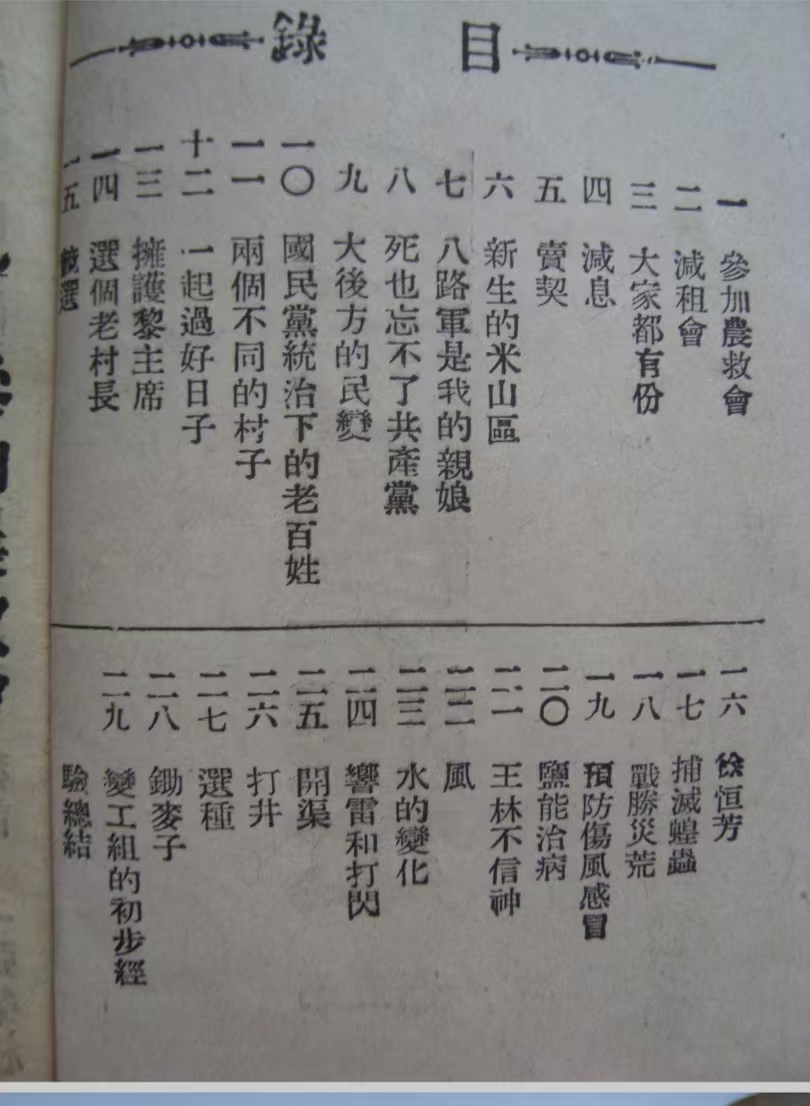 目錄
一 參加農救會
二 減租會
三 大家都有份
四 減息
五 賣契
六 新生的米山區
七 八路軍是我的親娘
八 死也忘不了共產黨
九 大後方的民變
一〇 國民黨統治下的老百姓
一一 兩個不同的村子
十二 一起過好日子
一三 擁護黎主席
一四 選個老村長
一五 競選
一六 徐恒芳
一七 捕滅蝗蟲
一八 戰勝災荒
一九 預防傷風感冒
二〇 鹽能治病
二一 王林不信神
二二 風
二三 水的變化
二四 響雷和打閃
二五 開渠
二六 打井
二七 選種
二八 鋤麥子
二九 變工組的初步經
驗總結